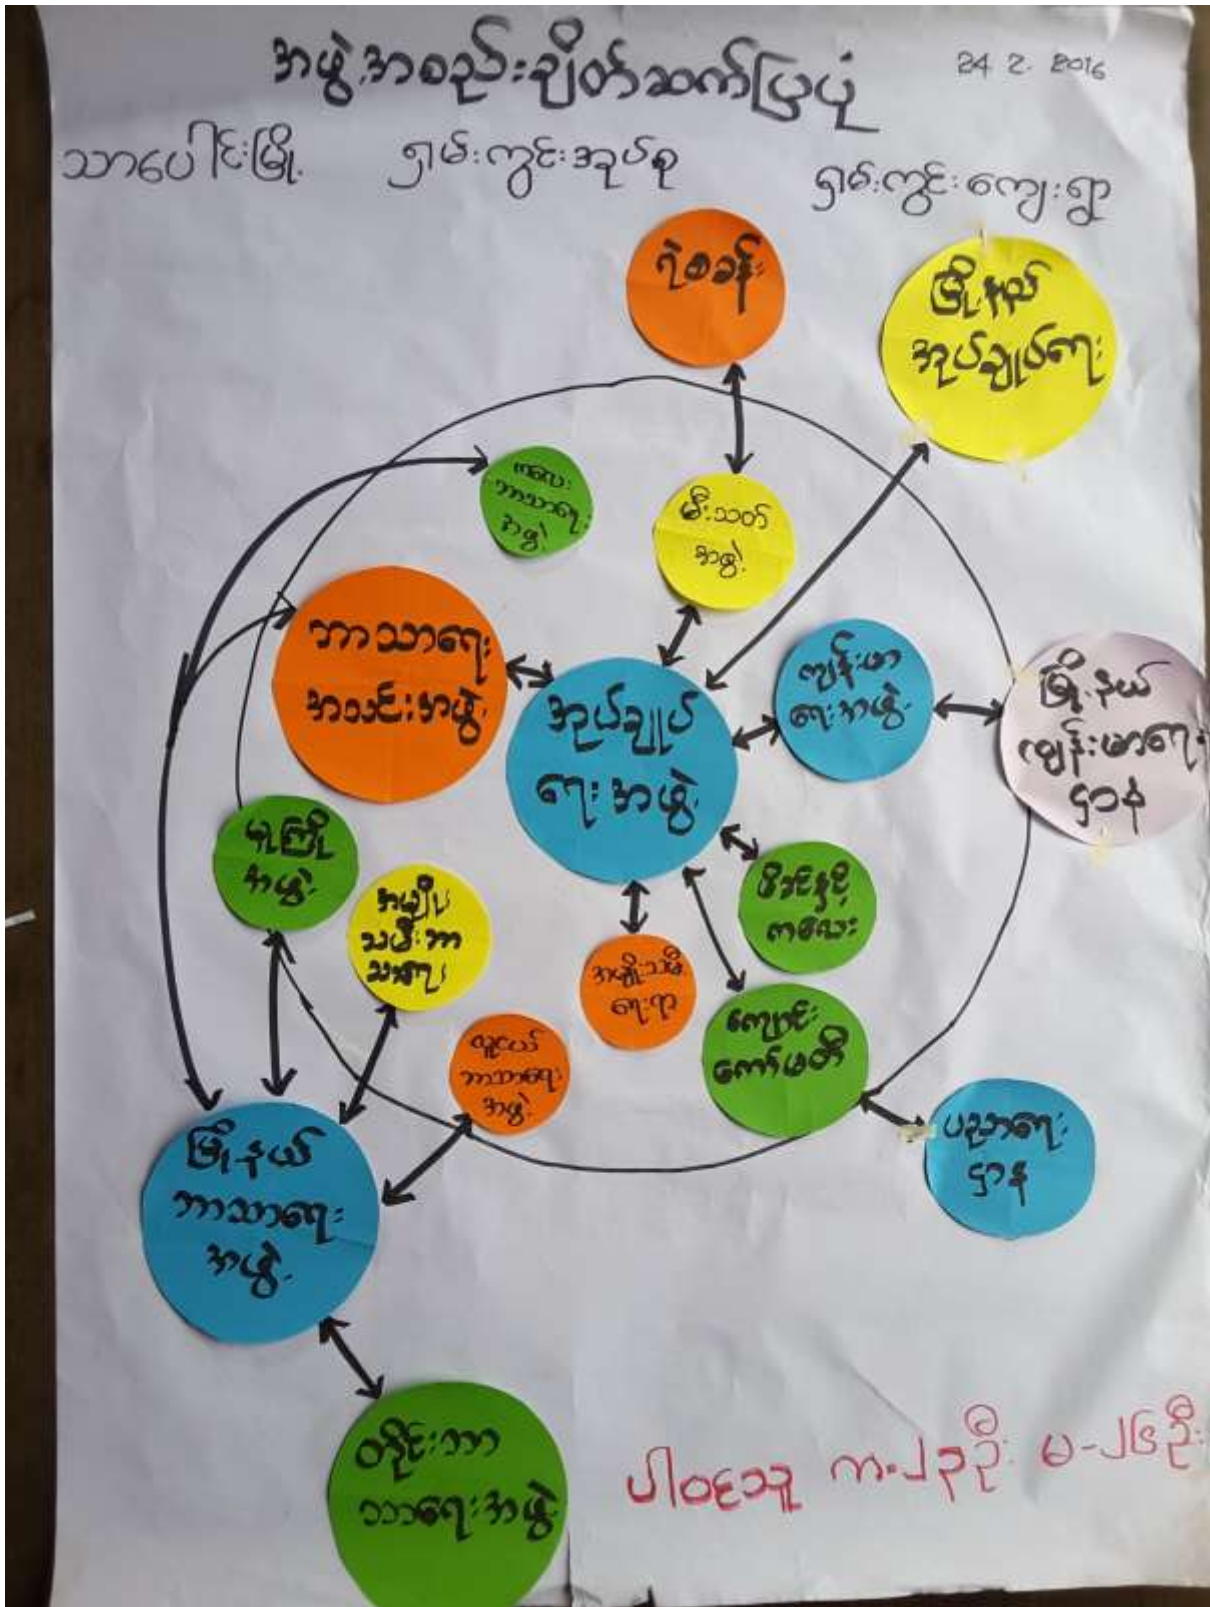 အဖွဲ့အစည်းချိတ်ဆက်ပြပုံ
24 2. 2016
သာပေါင်းမြို့
ရှမ်းကွင်းအုပ်စု
ရှမ်းကွင်းကျေးရွာ
ရဲစခန်း
မြို့နယ်
အုပ်ချုပ်ရေး
ကလေး
ဘာသာရေး
အဖွဲ့
မီးသတ်
အဖွဲ့
ဘာသာရေး
အသင်းအဖွဲ့
အုပ်ချုပ်
ရေးအဖွဲ့
ကျန်းမာ
ရေးအဖွဲ့
မြို့နယ်
ကျန်းမာရေး
ဌာန
မူကြို
အဖွဲ့
အမျိုး
သမီးဘာ
သာရေး
မိခင်နှင့်
ကလေး
အမျိုးသမီး
ရေးရာ
ကျောင်း
ကော်မတီ
လူငယ်
ဘာသာရေး
အဖွဲ့
ပညာရေး
ဌာန
မြို့နယ်
ဘာသာရေး
အဖွဲ့
တိုင်းဘာ
သာရေးအဖွဲ့
ပါဝင်သူ က-၂၃ဦး မ-၂၆ဦး